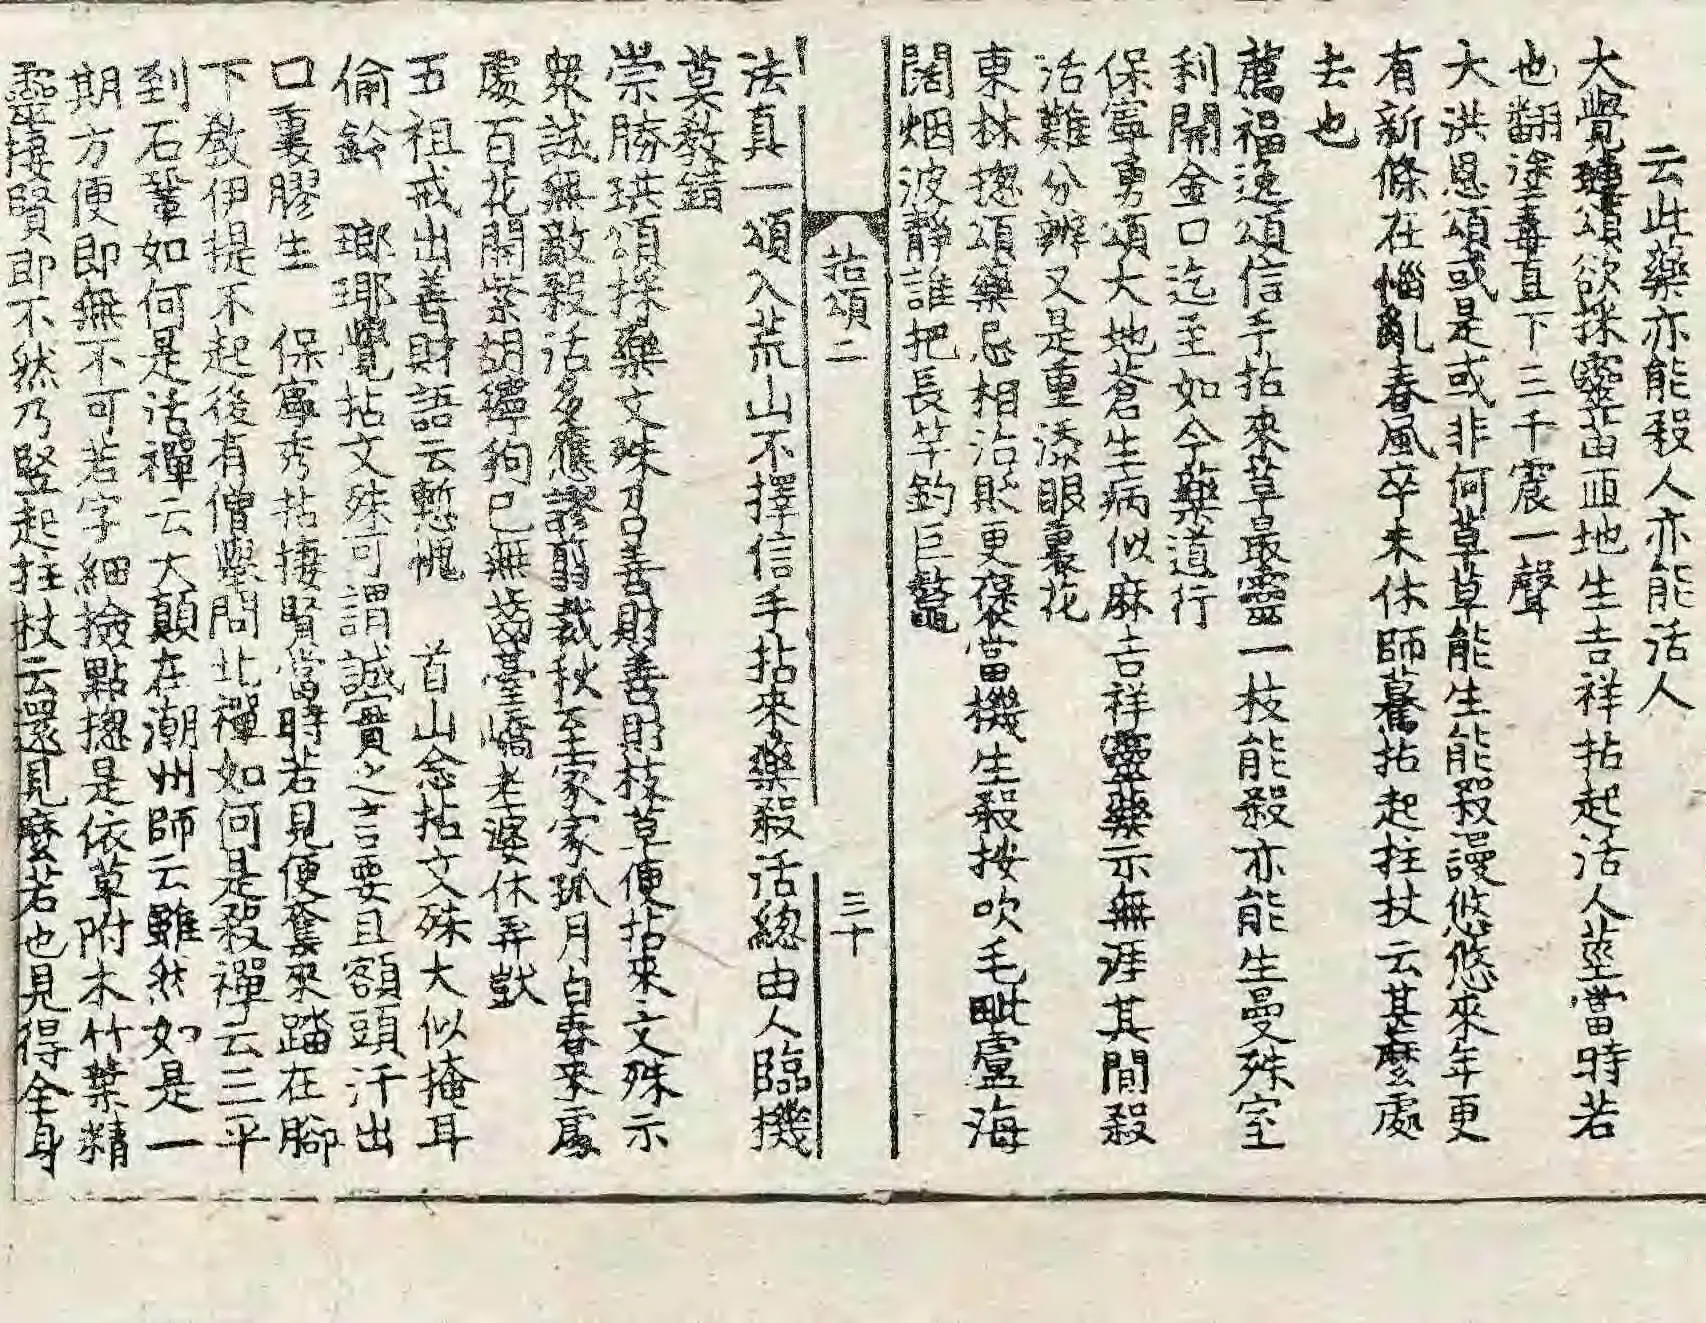 云此藥亦能殺人亦能活人
大覺璉頌欲採靈苗匝地生吉祥拈起活人莖當時若
也翻塗毒直下三千震一聲
大洪恩頌或是或非何草草能生能殺謾悠悠來年更
有新條在惱亂春風卒未休師驀拈起拄杖云甚麼處
去也
薦福逸頌信手拈來草最靈一枝能殺亦能生曼殊室
利開金口迄至如今藥道行
保寧勇頌大地蒼生病似麻吉祥靈藥示無涯其間殺
活難分辨又是重添眼裏花
東林揔頌藥忌相沾貶更褒當機生殺按吹毛毗盧海
闊烟波靜誰把長竿釣巨鼇
拈頌二 三十
法真一頌入荒山不擇信手拈來藥殺活總由人臨機
莫教錯
崇勝珙頌採藥文殊召善財善財枝草便拈來文殊示
衆誠無敵殺活多應謬剪裁秋至家家孤月白春來處
處百花開紫胡獰狗已無齒臺嶠老婆休弄獃
五祖戒出善財語云慙愧 首山念拈文殊大似掩耳
偷鈴 瑯瑘覺拈文殊可謂誠實之言要且額頭汗出
口裏膠生 保寧秀拈棲賢當時若見便奪來踏在腳
下教伊提不起後有僧舉問北禪如何是殺禪云三平
到石鞏如何是活禪云大顛在潮州師云雖然如是一
期方便即無不可若字細撿點揔是依草附木竹葉精
靈棲賢即不然乃竪起拄杖云還見麼若也見得全身